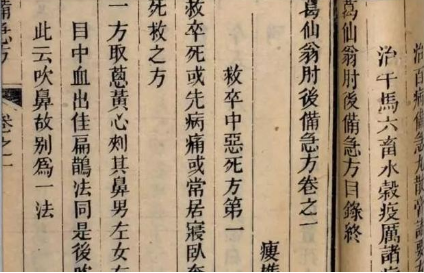 治牛馬六畜水穀疫厲諸
葛仙翁肘後備急方目錄終
葛仙翁肘後備急方卷之一
救卒中惡死方第一
救卒死或先病痛或常居寢臥奄
死救之方
一方取葱黃心刾其鼻男左女右
目中血出佳扁鵲法同是後
此云吹鼻故别爲一法
備急方
卷之一